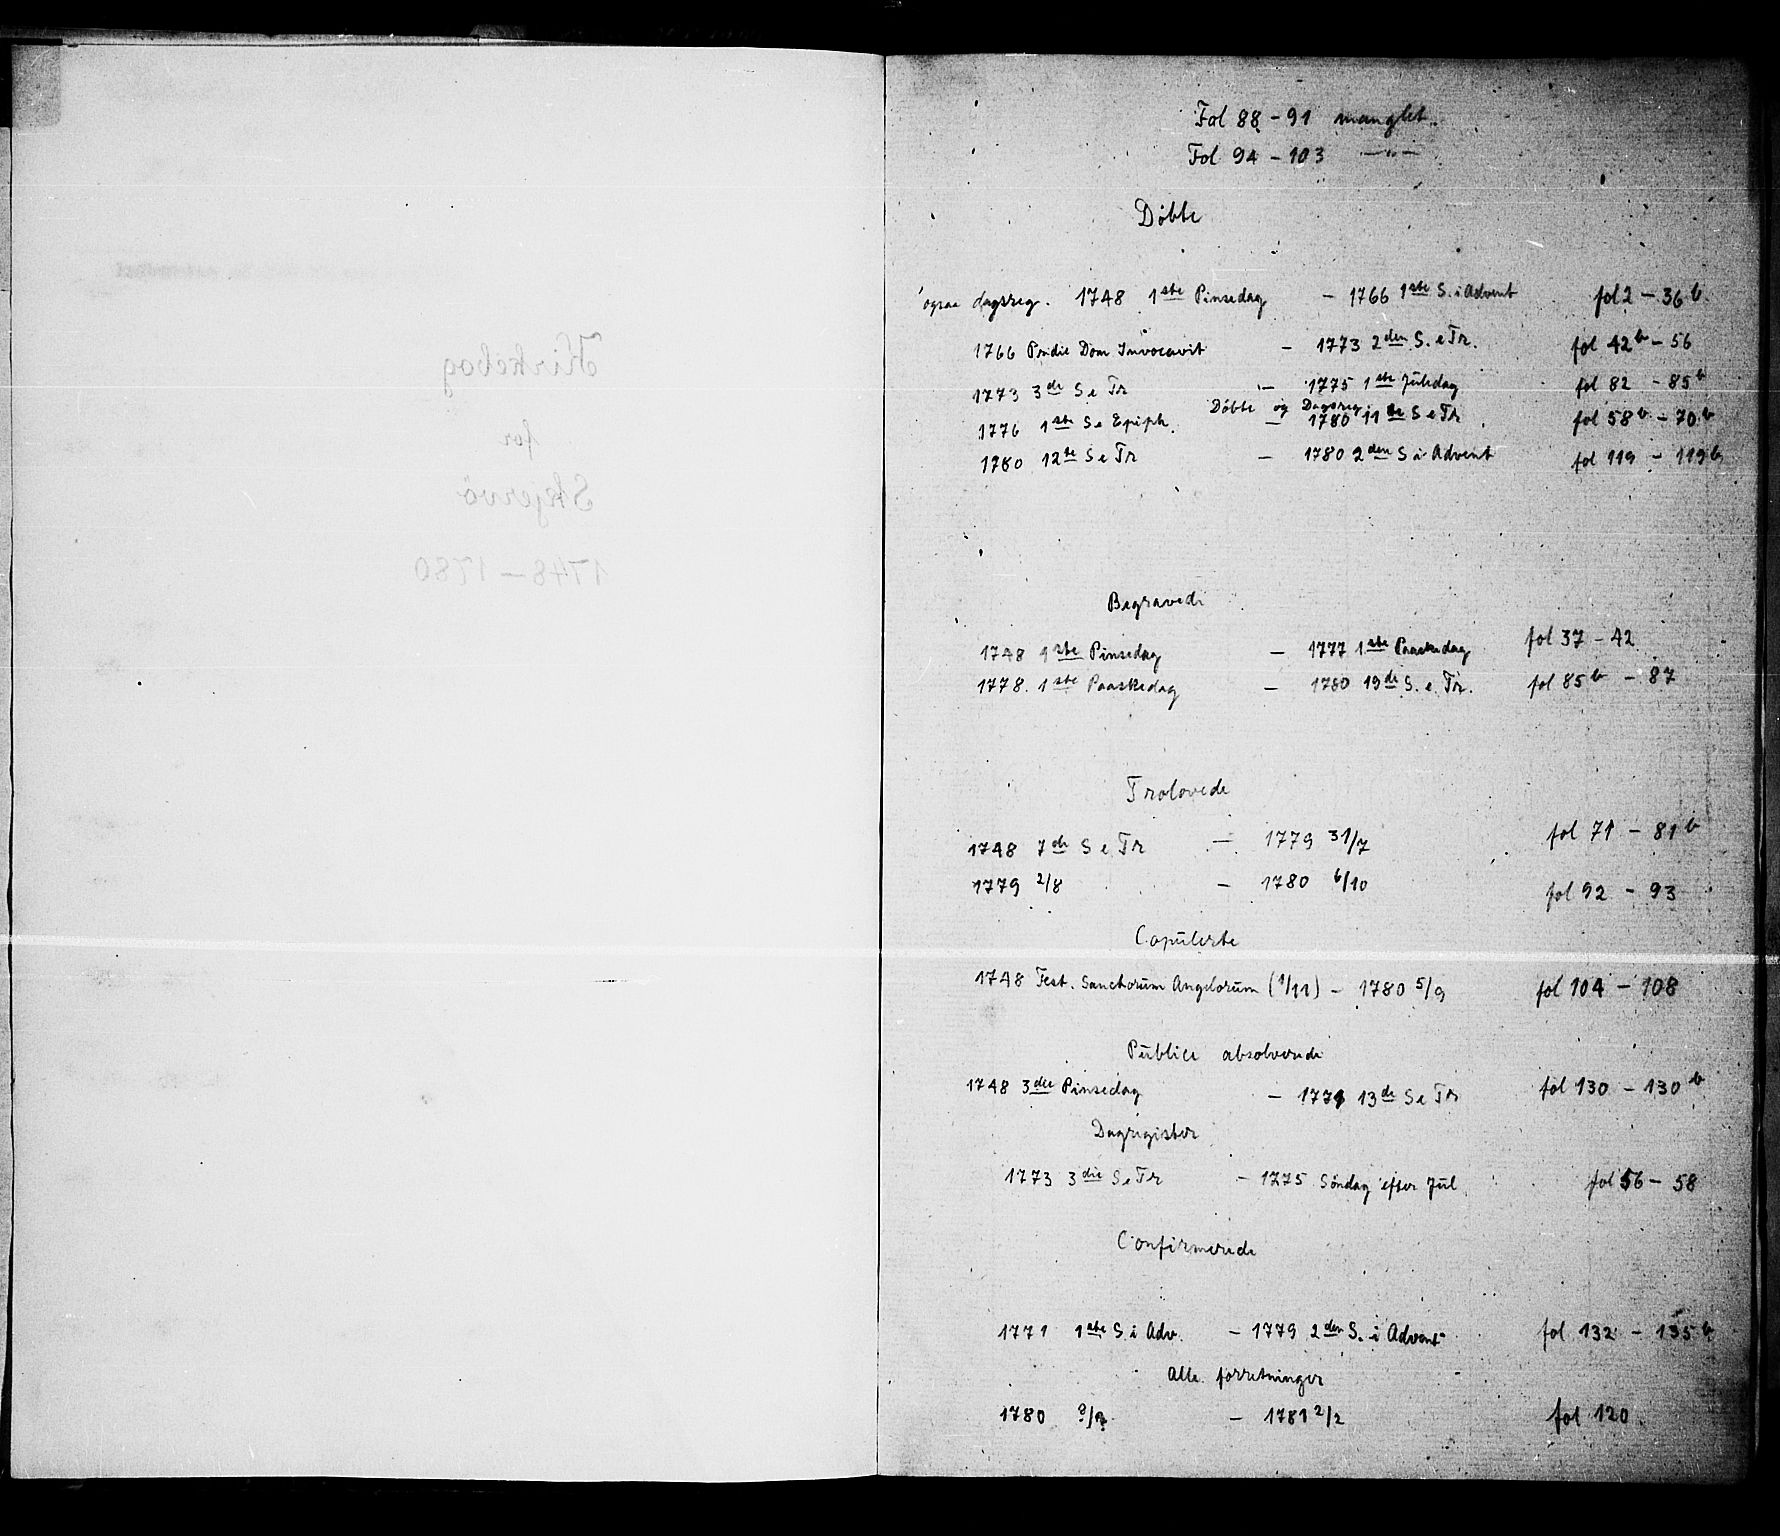 Kirkebog
for
Skjervö
1748 – 1780
Fol 88 – 91 manglet.
Fol 94 – 103 —"—
Døbte
ogsaa dagsreg. 1748 1ste Pinsedag – 1766 1ste S. i Advent fol 2 – 36 b.
1766 Pridie Dom Invocavit – 1773 2den S. e Tr. fol 42b – 56
1773 3de S e Tr – 1775 1ste Juledag fol 82 – 85b
Døbte og Dagsreg.
1776 1ste S e Epiph. – 1780 11te S e Tr fol 58b – 70b
1780 12te S e Tr – 1780 2den S i Advent fol 119 – 119b
Begravede
1748 1ste Pinsedag – 1777 1ste Paaskedag fol 37 – 42
1778. 1ste Paaskedag – 1780 19de S. e. Tr. fol 85b – 87
Trolovede
1748 7de S e Tr – 1779 31/7 fol 71 – 81b
1779 2/8 – 1780 6/10 fol 92 – 93
Copulerte
1748 Fest. Sanctorum Angelorum (1/11) – 1780 5/9 fol 104 – 108
Publice absolverede
1748 3die Pinsedag – 1771 13de S e Tr fol 130 – 130b
Dagregister
1773 3die S e Tr – 1775 Søndag efter Jul fol 56 – 58
Confirmerede
1771 1ste S i Adv. – 1779 2den S. i Advent fol 132 – 135b
Alle forretninger
1780 – 1781 2/2 fol 120